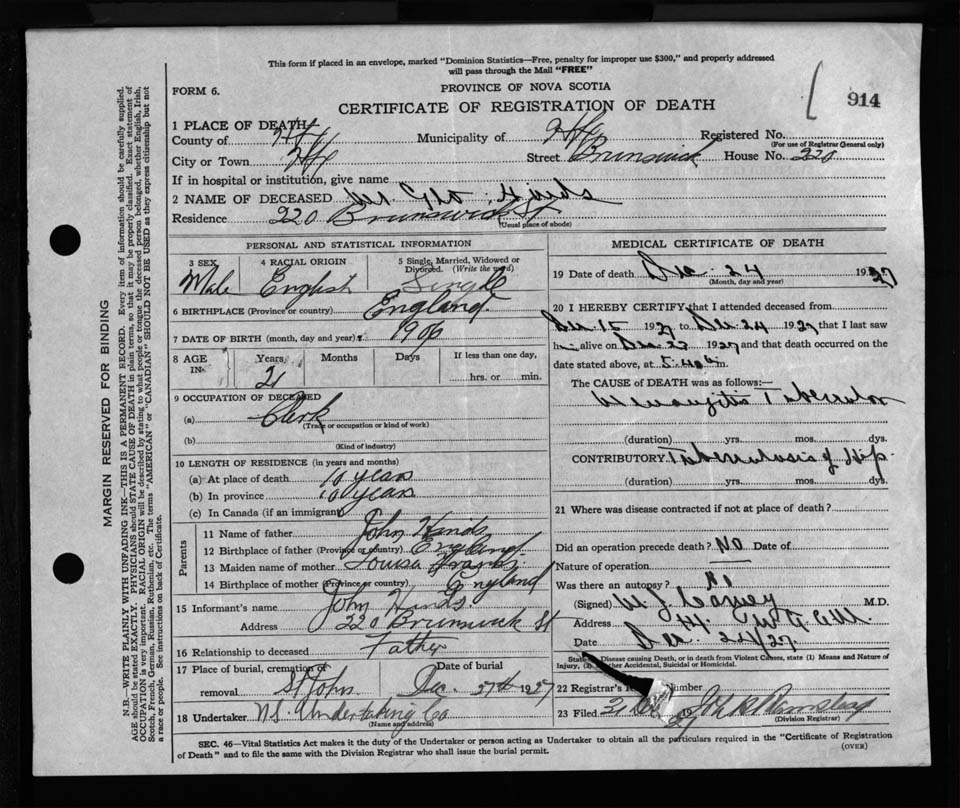 This form if placed in an envelope, marked "Dominion Statistics—Free, penalty for improper use $300," and properly addressed
will pass through the Mail "FREE"
FORM 6.
PROVINCE OF NOVA SCOTIA
914
CERTIFICATE OF REGISTRATION OF DEATH
1 PLACE OF DEATH
County of Hfx Municipality of Hfx Registered No.
(For use of Registrar General only)
City or Town Hfx Street Brunswick House No. 220
If in hospital or institution, give name
2 NAME OF DECEASED Hinds
Residence 220 Brunswick St
(Usual place of abode)
PERSONAL AND STATISTICAL INFORMATION
3 SEX Male
4 RACIAL ORIGIN English
5 Single, Married, Widowed or Divorced. (Write the word) Single
6 BIRTHPLACE (Province or country) England.
7 DATE OF BIRTH (month, day and year) 1906
8 AGE IN: Years 21 Months Days If less than one day, hrs. or min.
9 OCCUPATION OF DECEASED
(a) Clerk
(Trade or occupation or kind of work)
(b)
(Kind of industry)
10 LENGTH OF RESIDENCE (in years and months)
(a) At place of death 10 years
(b) In province 10 years
(c) In Canada (if an immigrant)
Parents
11 Name of father John Hinds
12 Birthplace of father (Province or country) England.
13 Maiden name of mother Louisa
14 Birthplace of mother (Province or country) England
15 Informant's name John Hinds.
Address 220 Brunswick St
16 Relationship to deceased Father
17 Place of burial, cremation or removal St Johns Date of burial Dec. 27th 1927
18 Undertaker N.S. Undertaking Co
(Name and address)
MEDICAL CERTIFICATE OF DEATH
19 Date of death Dec. 24 1927
(Month, day and year)
20 I HEREBY CERTIFY that I attended deceased from
Dec 15 1927 to Dec 24 1927 that I last saw
h alive on Dec 23 1927 and that death occurred on
date stated above, at 5.40 m.
The CAUSE OF DEATH was as follows:—
Meningitis Tubercular
(duration) yrs. mos. dys.
CONTRIBUTORY Tuberculosis of Hip.
(duration) yrs. mos. dys.
21 Where was disease contracted if not at place of death?
Did an operation precede death? No Date of
Nature of operation
Was there an autopsy?
(Signed) M.D.
Address
Date Dec 24/27.
State Disease causing Death, or in death from Violent Causes, state (1) Means and Nature of
Injury, (2) Whether Accidental, Suicidal or Homicidal.
22 Registrar's Number
23 Filed 19
(Division Registrar)
SEC. 46—Vital Statistics Act makes it the duty of the Undertaker or person acting as Undertaker to obtain all the particulars required in the "Certificate of Registration
of Death" and to file the same with the Division Registrar who shall issue the burial permit.
(OVER)
MARGIN RESERVED FOR BINDING
N.B.—WRITE PLAINLY WITH UNFADING INK—THIS IS A PERMANENT RECORD. Every item of information should be carefully supplied.
AGE should be stated EXACTLY. PHYSICIANS should STATE CAUSE OF DEATH in plain terms, so that it may be properly classified. Exact statement of
OCCUPATION is very important. RACIAL ORIGIN will be described by stating to what people or tongue the deceased person belonged, whether English, Irish,
Scotch, French, German, Russian, Ruthenian, etc. The terms "AMERICAN" or "CANADIAN" SHOULD NOT BE USED as they express citizenship but not
a race or people. See instructions on back of Certificate.